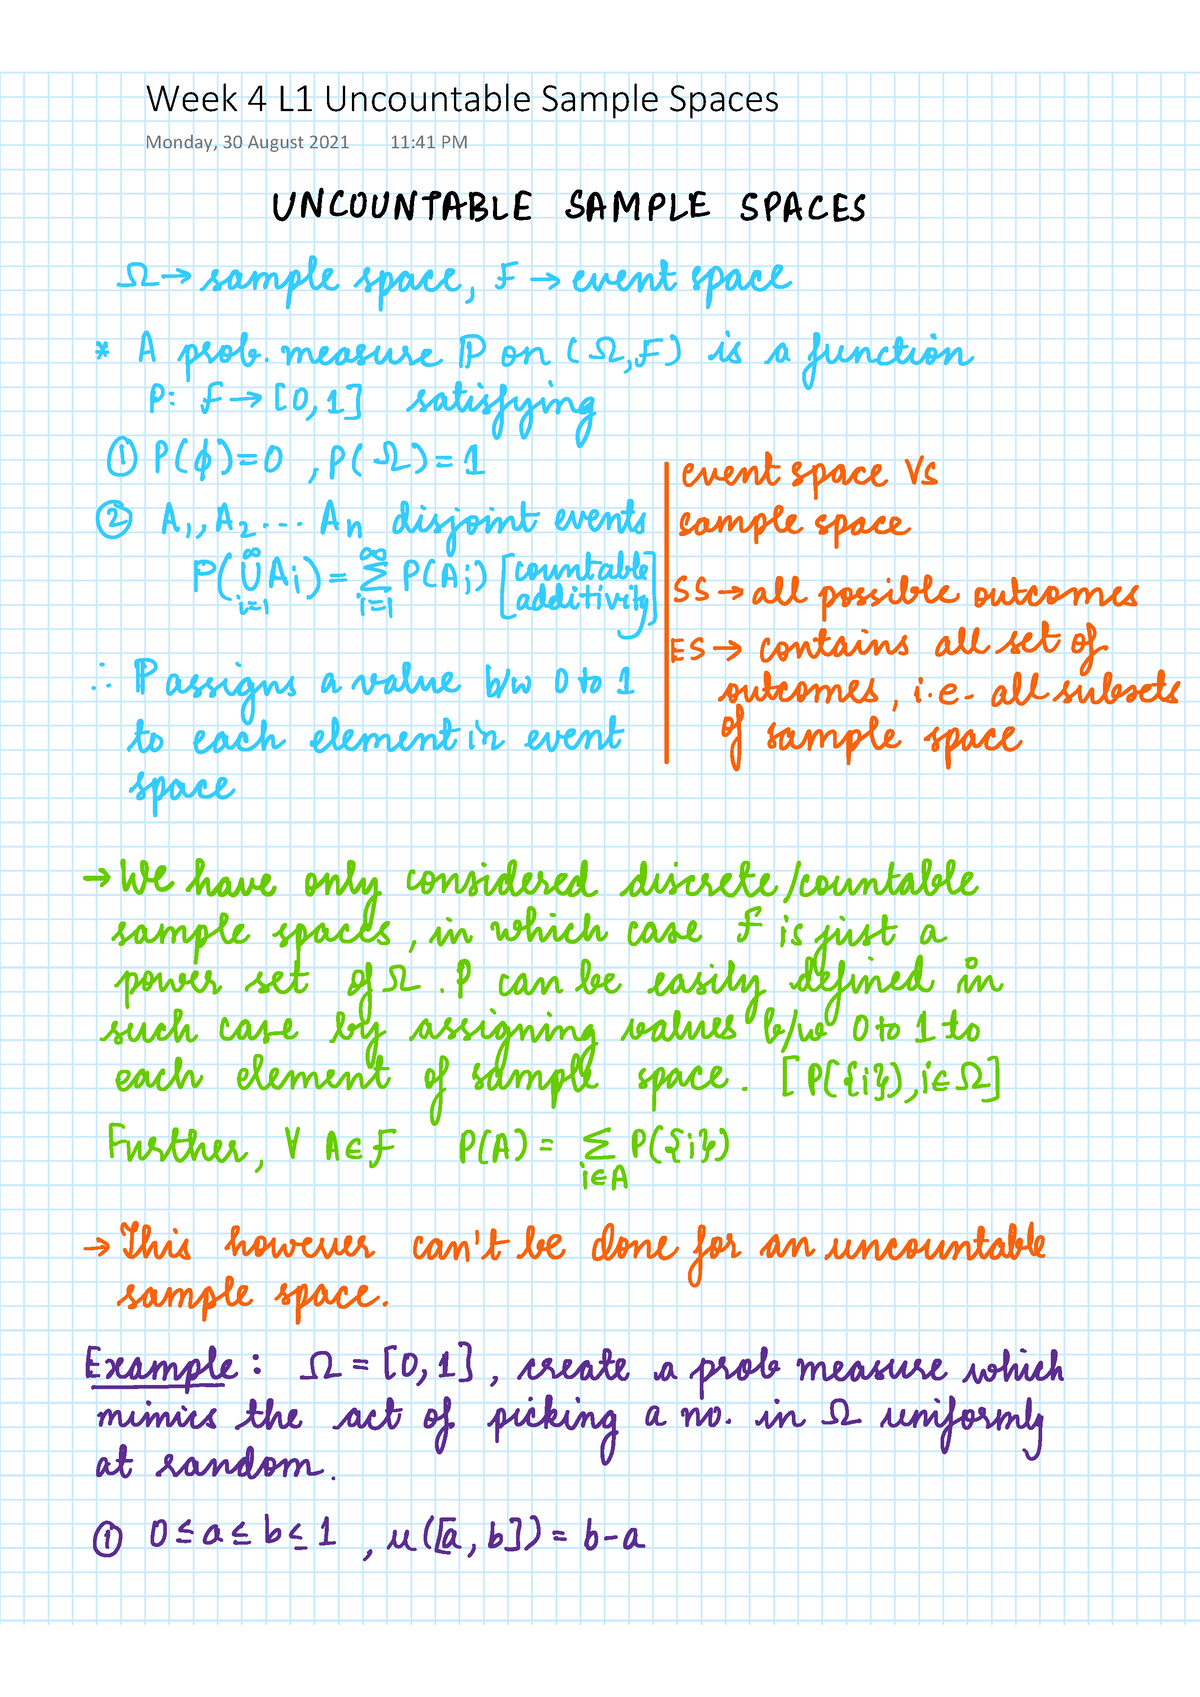 Week 4 L1 Uncountable Sample Spaces
Monday, 30 August 2021 11:41 PM
UNCOUNTABLE SAMPLE SPACES
Ω → sample space, F → event space
* A prob. measure ℙ on (Ω,F) is a function
P: F → [0,1] satisfying
① P(ϕ)=0 , P(Ω)=1
② A₁, A₂ ... Aₙ disjoint events
P(∞∪i=1 Ai) = ∞Σi=1 P(Ai) [countable
additivity]
∴ ℙ assigns a value b/w 0 to 1
to each element in event
space
event space Vs
sample space
SS → all possible outcomes
ES → contains all set of
outcomes, i.e- all subsets
of sample space
→ We have only considered discrete/countable
sample spaces, in which case F is just a
power set of Ω. P can be easily defined in
such case by assigning values b/w 0 to 1 to
each element of sample space. [P({i}), i∈Ω]
Further, ∀ A∈F P(A) = Σ P({i})
i∈A
→ This however can't be done for an uncountable
sample space.
Example: Ω = [0,1], create a prob measure which
mimics the act of picking a no. in Ω uniformly
at random.
① 0≤a≤b≤1 , u([a,b]) = b-a